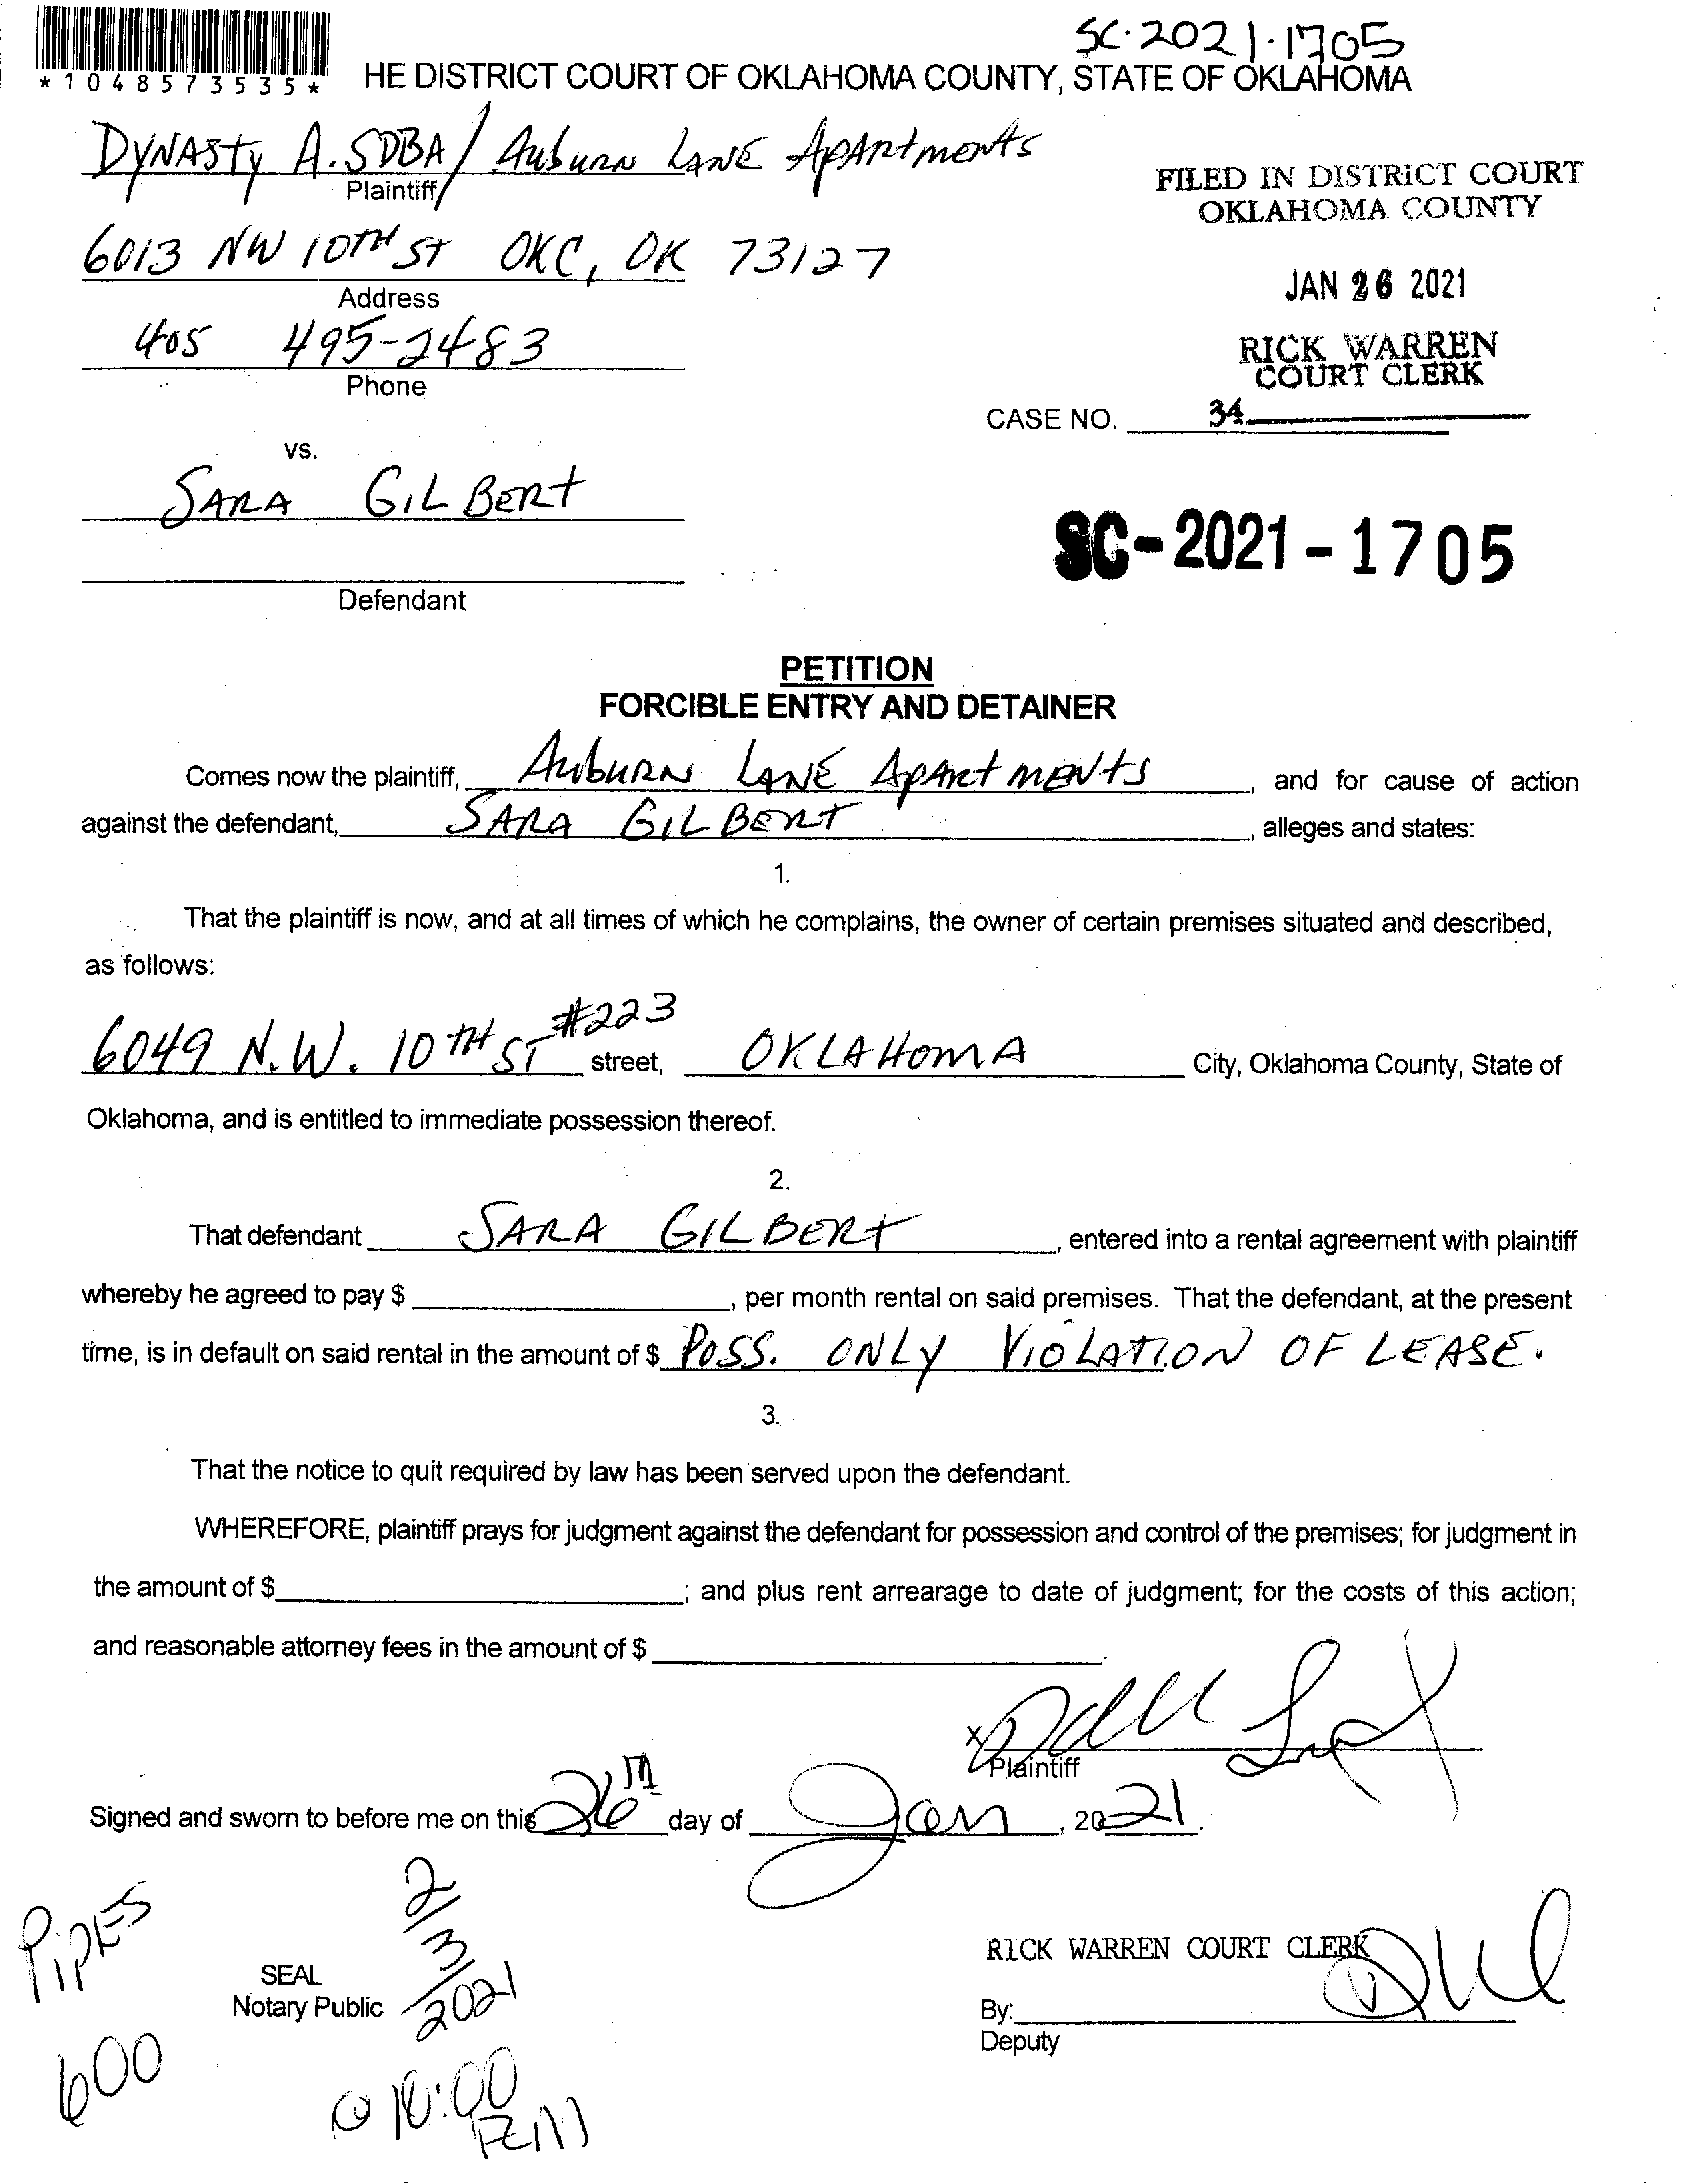 SC-2021-1705
*1048573535*
HE DISTRICT COURT OF OKLAHOMA COUNTY, STATE OF OKLAHOMA
DYNASTY A. SDBA/ Auburn LANE ApARtments
Plaintiff
FILED IN DISTRICT COURT
OKLAHOMA COUNTY
6013 NW 10TH ST OKC, OK 73127
Address
JAN 26 2021
405 495-2483
Phone
RICK WARREN
COURT CLERK
CASE NO. 34
vs.
SARA GILBERT
SC-2021-1705
Defendant
PETITION
FORCIBLE ENTRY AND DETAINER
Comes now the plaintiff, AuburN LANE ApARtMENtS, and for cause of action
against the defendant, SARA GILBERT, alleges and states:
1.
That the plaintiff is now, and at all times of which he complains, the owner of certain premises situated and described,
as follows:
6049 N.W. 10TH ST #223 street, OKLAHOMA City, Oklahoma County, State of
Oklahoma, and is entitled to immediate possession thereof.
2.
That defendant SARA GILBERT, entered into a rental agreement with plaintiff
whereby he agreed to pay $ , per month rental on said premises. That the defendant, at the present
time, is in default on said rental in the amount of $ POSS. ONLY VIOLATION OF LEASE.
3.
That the notice to quit required by law has been served upon the defendant.
WHEREFORE, plaintiff prays for judgment against the defendant for possession and control of the premises; for judgment in
the amount of $ ; and plus rent arrearage to date of judgment; for the costs of this action;
and reasonable attorney fees in the amount of $ .
X
Plaintiff
Signed and sworn to before me on this 26th day of Jan, 2021.
PIPES
600
2/3/2021
SEAL
Notary Public
RICK WARREN COURT CLERK
By:
Deputy